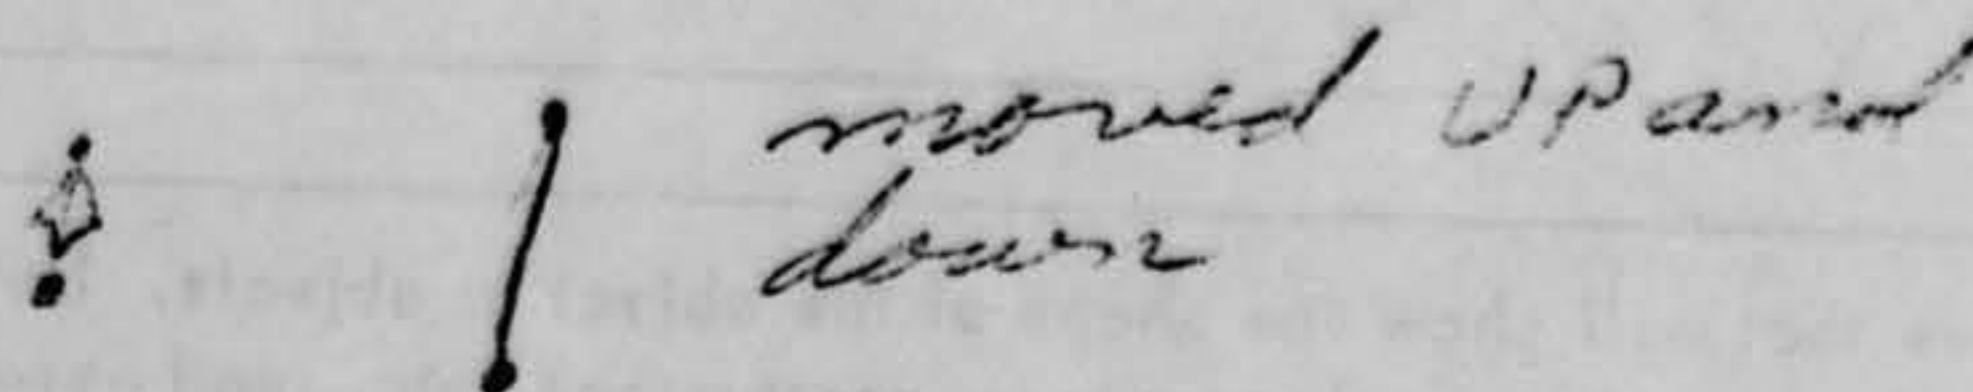 moved UP and
down